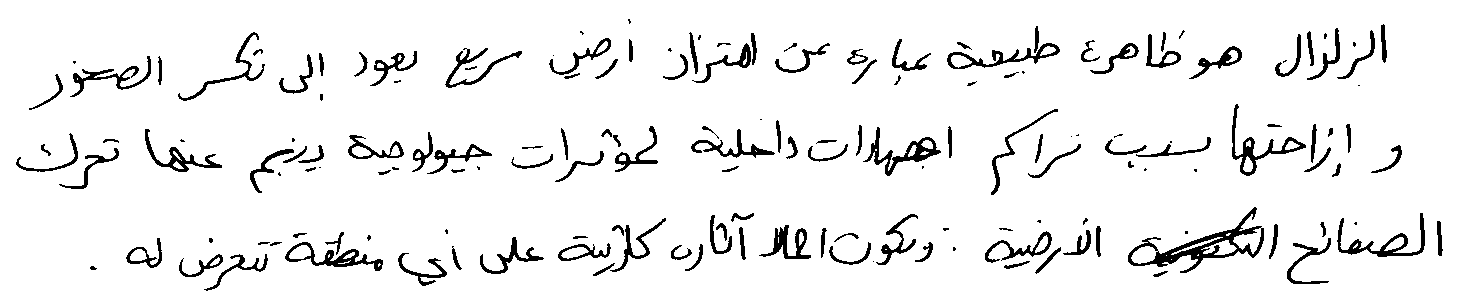 الزلزال هو ظاهرة طبيعية عباره عن اهتزاز أرضي سريع يعود إلى تكسر الصخور
و إزاحتها بسبب تراكم اجهادات داخلية لمؤثرات جيولوجية ينجم عنها تحرك
الصفائح الأرضية . وتكون آثاره كارثية على أي منطقة تتعرض له .